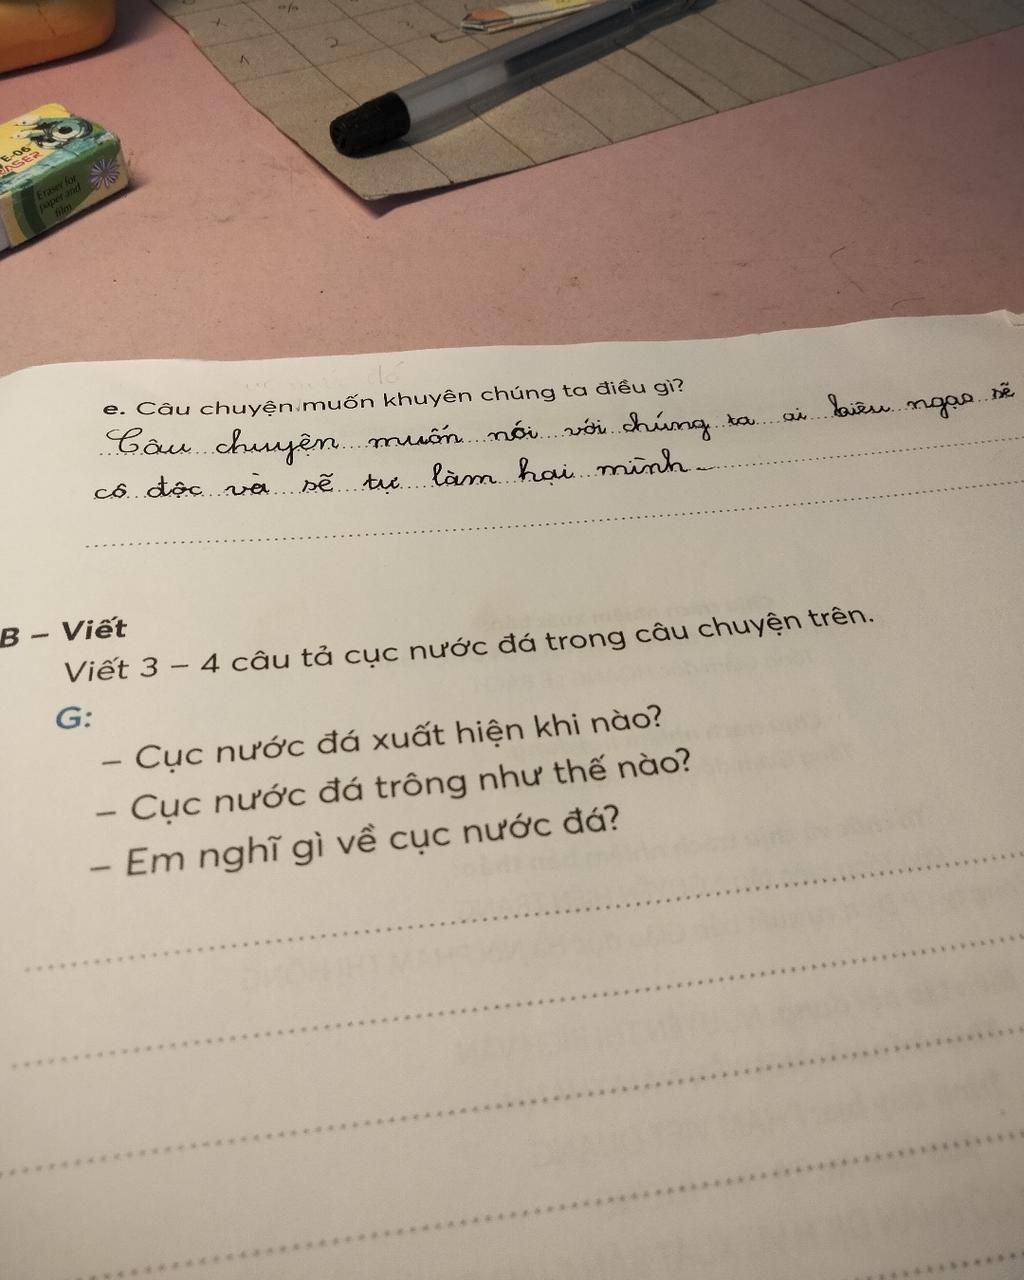 x %
1 2 3
E-06
ERASER
Eraser for
paper and
film
e. Câu chuyện muốn khuyên chúng ta điều gì?
Câu chuyện muốn nói với chúng ta ai kiêu ngạo sẽ
cô độc và sẽ tự làm hại mình
B – Viết
Viết 3 – 4 câu tả cục nước đá trong câu chuyện trên.
G:
– Cục nước đá xuất hiện khi nào?
– Cục nước đá trông như thế nào?
– Em nghĩ gì về cục nước đá?